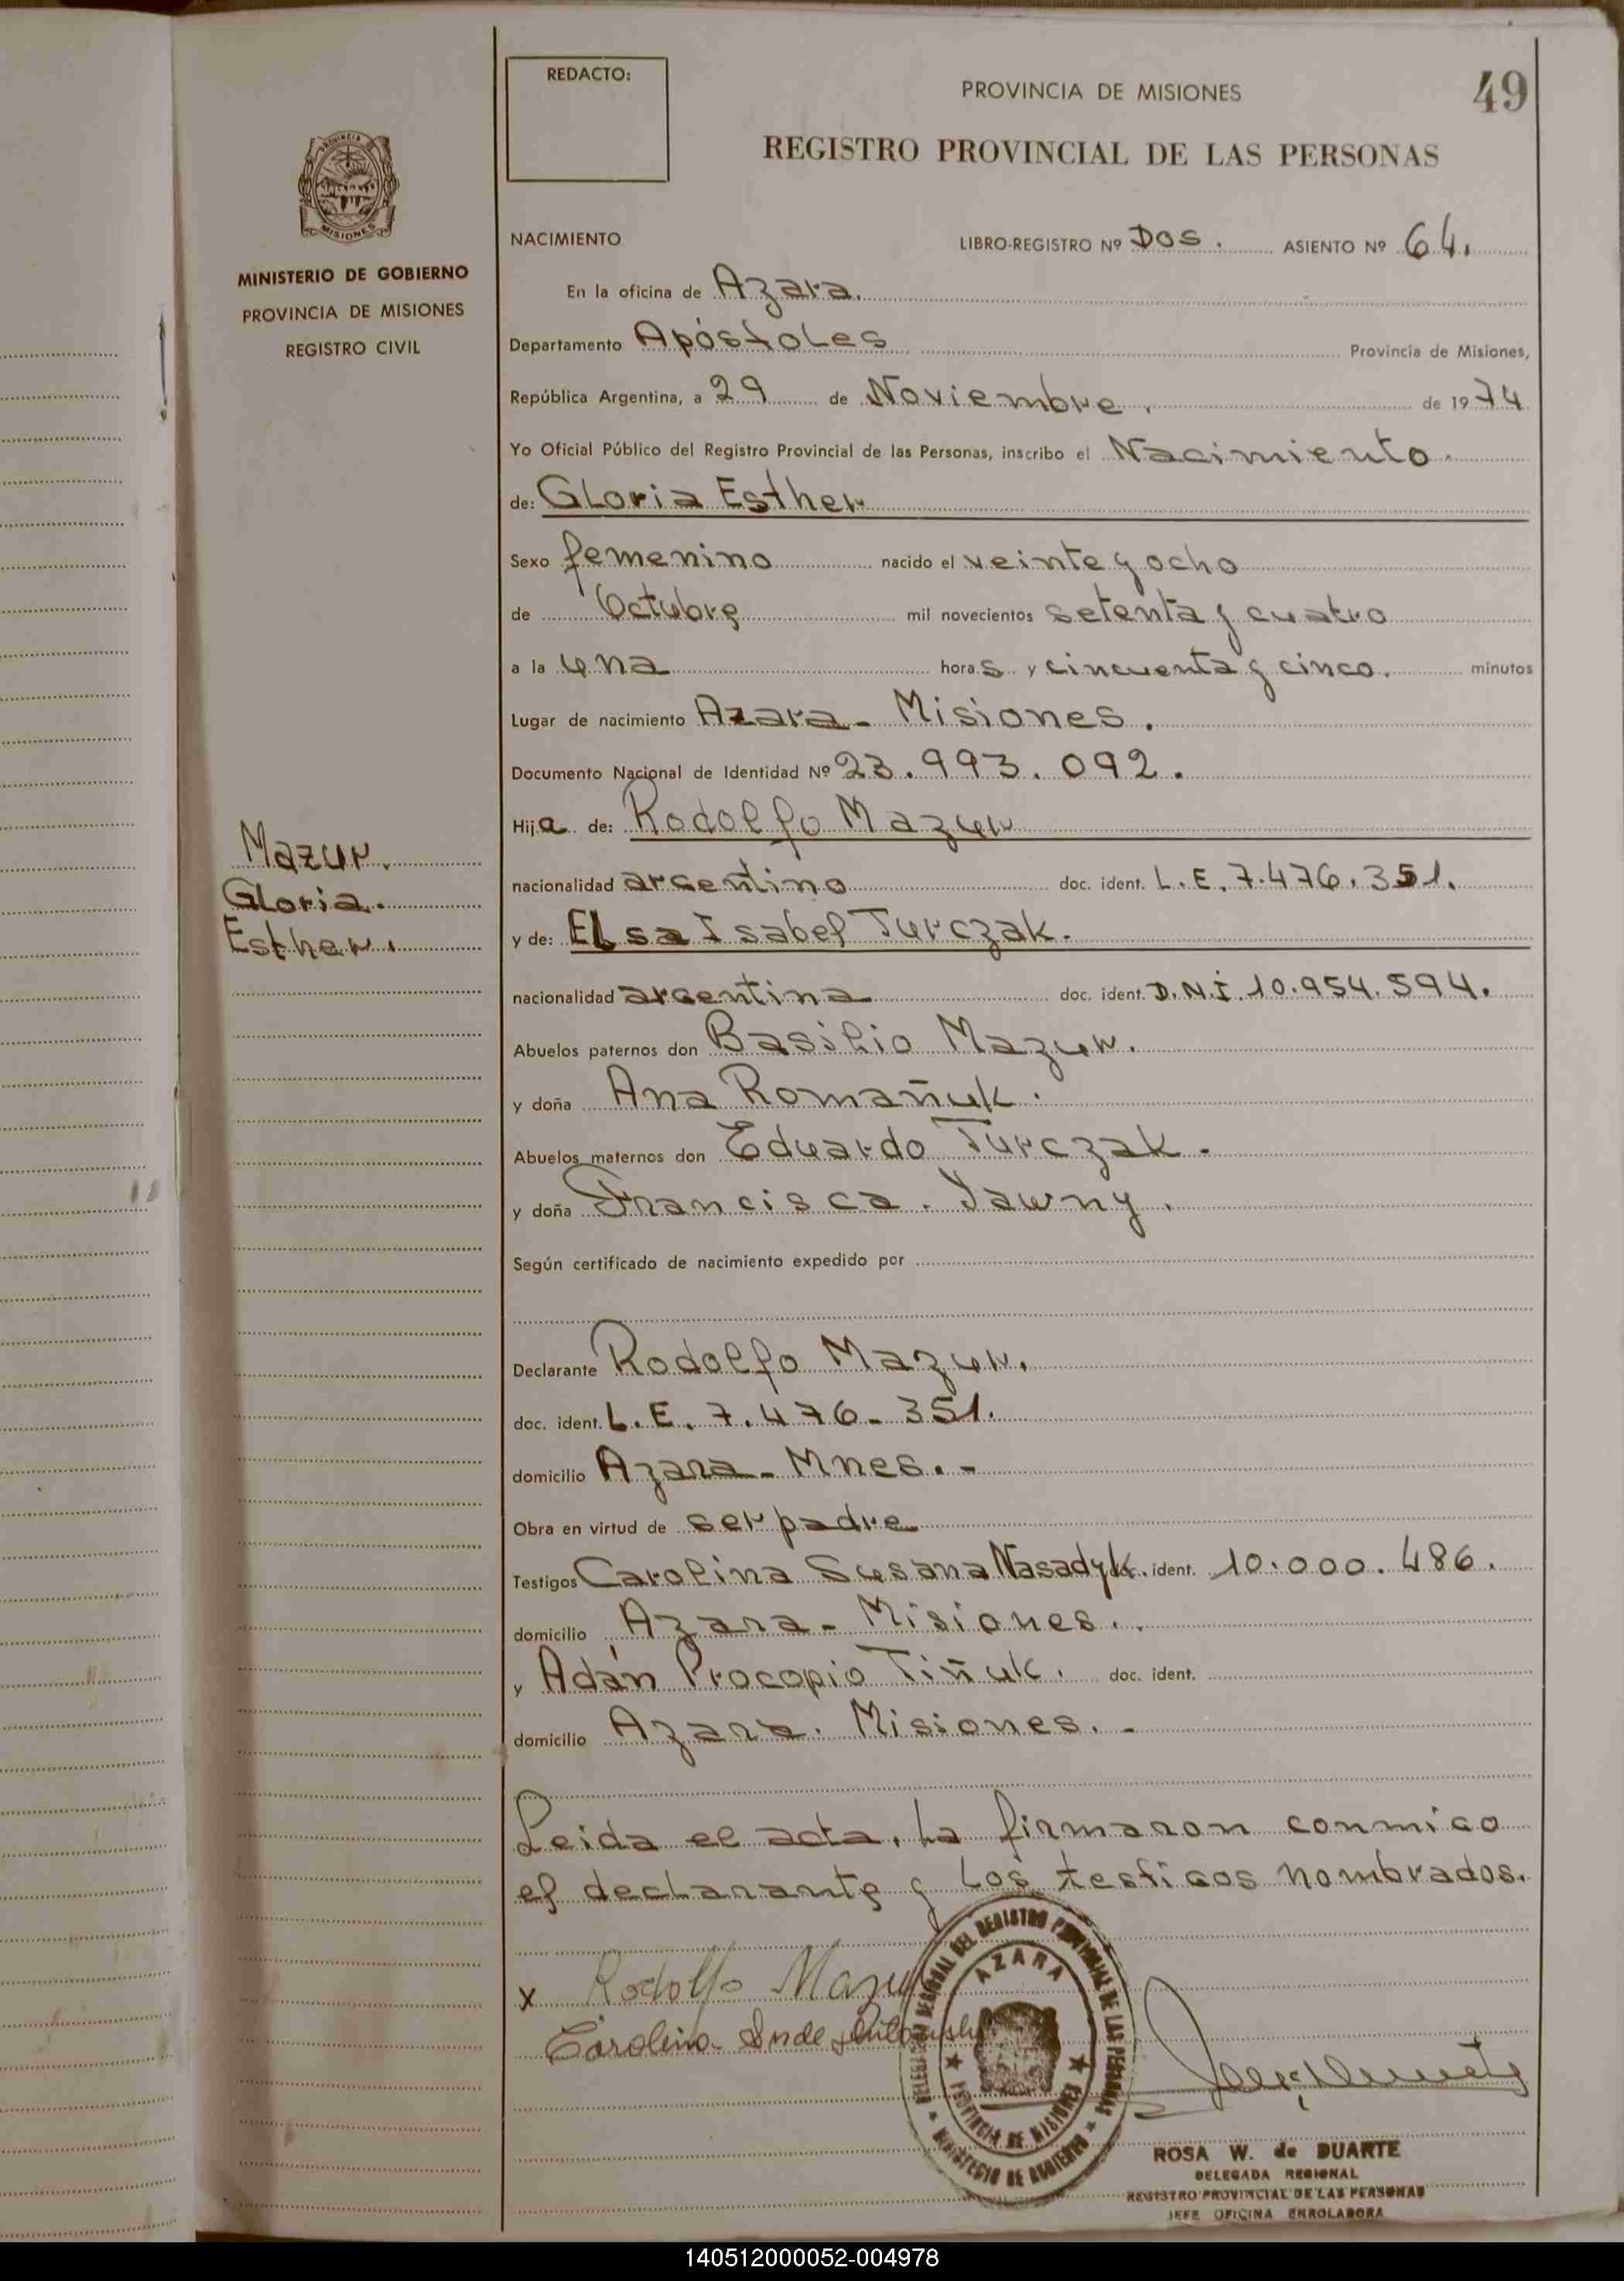 REDACTO:
PROVINCIA DE MISIONES
49
REGISTRO PROVINCIAL DE LAS PERSONAS
MISIONES
MINISTERIO DE GOBIERNO
PROVINCIA DE MISIONES
REGISTRO CIVIL
NACIMIENTO LIBRO-REGISTRO Nº DOS. ASIENTO Nº 64.
En la oficina de Azara.
Departamento Apóstoles Provincia de Misiones,
República Argentina, a 29 de Noviembre. de 1974
Yo Oficial Público del Registro Provincial de las Personas, inscribo el Nacimiento.
de: Gloria Esther
Sexo femenino nacido el veinte y ocho
de Octubre mil novecientos setenta y cuatro
a la una horas y cincuenta y cinco. minutos
Lugar de nacimiento Azara - Misiones.
Documento Nacional de Identidad Nº 23.993.092.
Hija de: Rodolfo Mazur
Mazur.
Gloria.
Esther.
nacionalidad argentino doc. ident. L.E. 7.476.351.
y de: Elsa Isabel Turczak.
nacionalidad argentina doc. ident. D.N.I. 10.954.594.
Abuelos paternos don Basilio Mazur.
y doña Ana Romañuk.
Abuelos maternos don Eduardo Turczak.
y doña Francisca. Yawny.
Según certificado de nacimiento expedido por
Declarante Rodolfo Mazur.
doc. ident. L.E. 7.476-351.
domicilio Azara - Mnes. -
Obra en virtud de ser padre
Testigos Carolina Susana Nasadyk. ident. 10.000.486.
domicilio Azara - Misiones.
y Adán Procopio Tiñuk. doc. ident.
domicilio Azara. Misiones. -
Leida el acta, la firmaron conmigo
el declarante y los testigos nombrados.
x Rodolfo Mazur
Carolina
DELEGACION REGIONAL DEL REGISTRO PROVINCIAL DE LAS PERSONAS
AZARA
PROVINCIA DE MISIONES
MINISTERIO DE GOBIERNO
ROSA W. de DUARTE
DELEGADA REGIONAL
REGISTRO PROVINCIAL DE LAS PERSONAS
JEFE OFICINA ENROLADORA
140512000052-004978